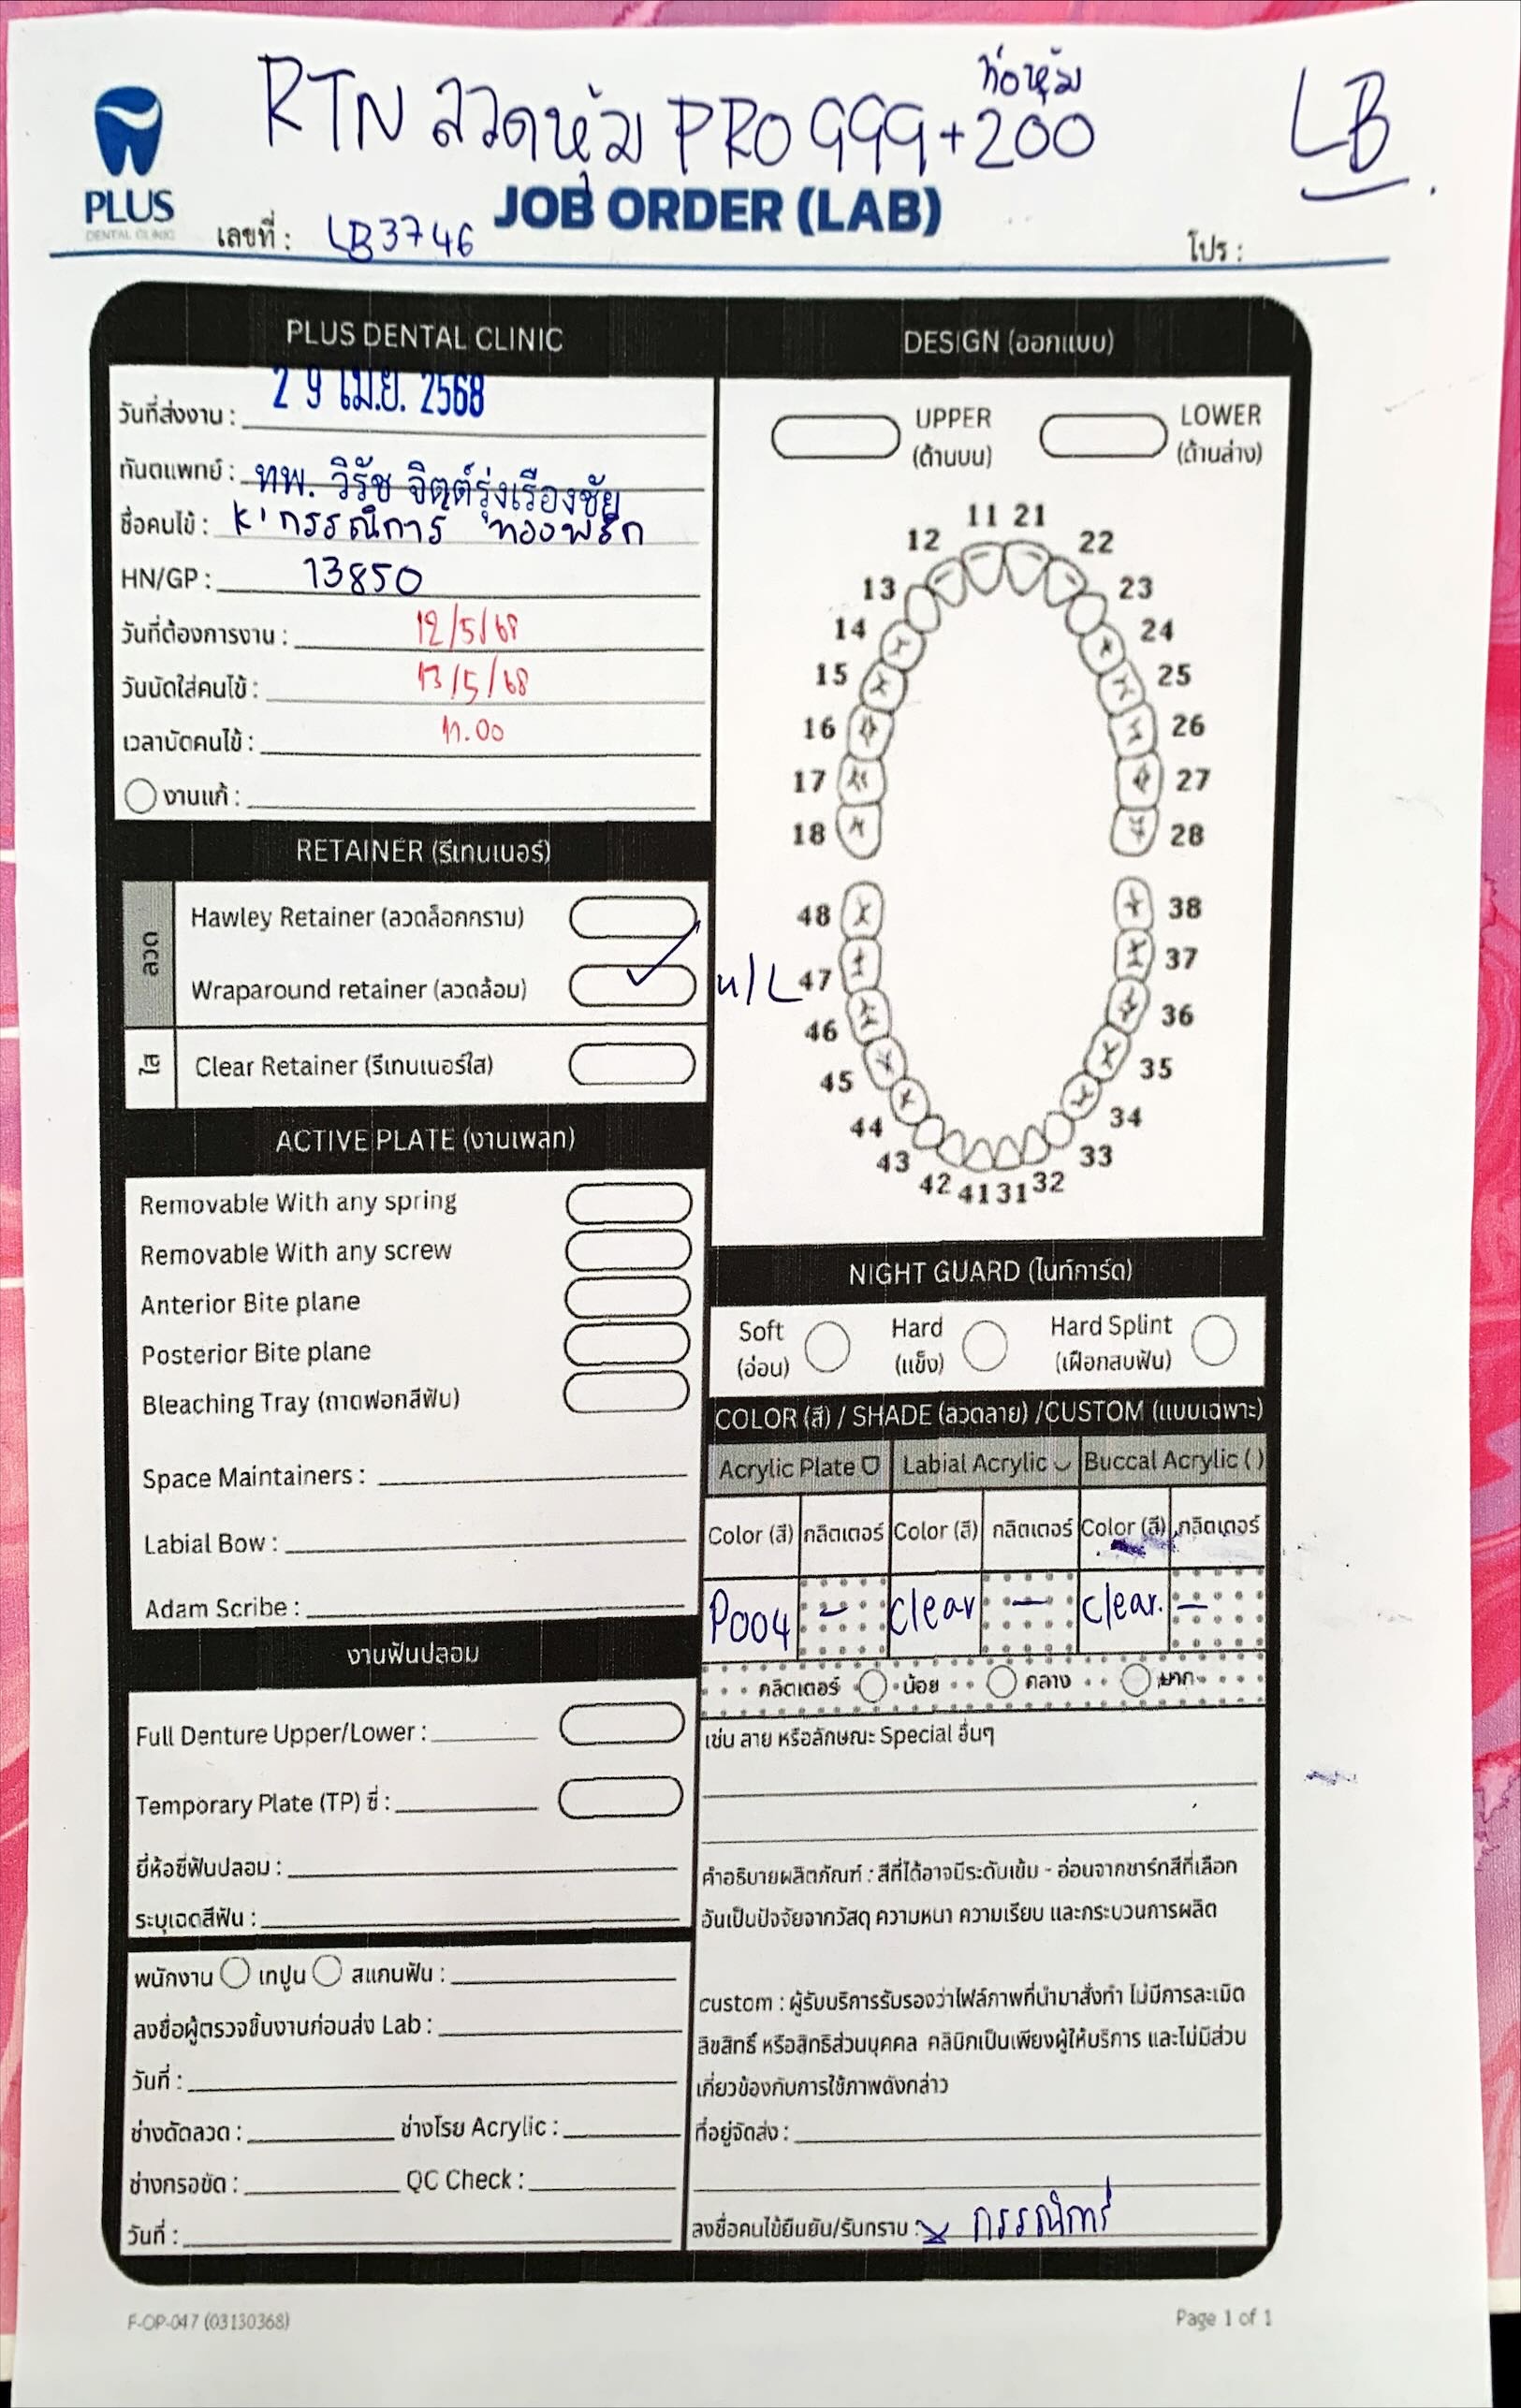 ท่อหุ้ม
RTN ลวดหุ้ม PRO 999+200
LB
PLUS
DENTAL CLINIC
JOB ORDER (LAB)
เลขที่ : LB3746
โปร :
PLUS DENTAL CLINIC
วันที่ส่งงาน : 29 เม.ย. 2568
ทันตแพทย์ : ทพ. วิรัช จิตต์รุ่งเรืองชัย
ชื่อคนไข้ : K' กรรณิการ์
HN/GP : 13850
วันที่ต้องการงาน : 12/5/68
วันนัดใส่คนไข้ : 13/5/68
เวลานัดคนไข้ : 11.00
งานแก้ :
RETAINER (รีเทนเนอร์)
ลวด
Hawley Retainer (ลวดล็อกกราม)
Wraparound retainer (ลวดล้อม) ✓ u/L
ใส
Clear Retainer (รีเทนเนอร์ใส)
ACTIVE PLATE (งานเพลท)
Removable With any spring
Removable With any screw
Anterior Bite plane
Posterior Bite plane
Bleaching Tray (ถาดฟอกสีฟัน)
Space Maintainers :
Labial Bow :
Adam Scribe :
งานฟันปลอม
Full Denture Upper/Lower :
Temporary Plate (TP) ซี่ :
ยี่ห้อซี่ฟันปลอม :
ระบุเฉดสีฟัน :
พนักงาน เทปูน สแกนฟัน :
ลงชื่อผู้ตรวจชิ้นงานก่อนส่ง Lab :
วันที่ :
ช่างดัดลวด : ช่างโรย Acrylic :
ช่างกรอขัด : QC Check :
วันที่ :
DESIGN (ออกแบบ)
UPPER LOWER
(ด้านบน) (ด้านล่าง)
11 21
12 22
13 23
14 24
15 25
16 26
17 27
18 28
48 38
47 37
46 36
45 35
44 34
43 33
42 41 31 32
NIGHT GUARD (ไนท์การ์ด)
Soft Hard Hard Splint
(อ่อน) (แข็ง) (เฝือกสบฟัน)
COLOR (สี) / SHADE (ลวดลาย) /CUSTOM (แบบเฉพาะ)
Acrylic Plate Labial Acrylic Buccal Acrylic ( )
Color (สี) กลิตเตอร์ Color (สี) กลิตเตอร์ Color (สี) กลิตเตอร์
P004 - clear - clear. -
กลิตเตอร์ น้อย กลาง มาก
เช่น ลาย หรือลักษณะ Special อื่นๆ
คำอธิบายผลิตภัณฑ์ : สีที่ได้อาจมีระดับเข้ม - อ่อนจากชาร์ทสีที่เลือก
อันเป็นปัจจัยจากวัสดุ ความหนา ความเรียบ และกระบวนการผลิต
custom : ผู้รับบริการรับรองว่าไฟล์ภาพที่นำมาสั่งทำ ไม่มีการละเมิด
ลิขสิทธิ์ หรือสิทธิส่วนบุคคล คลินิกเป็นเพียงผู้ให้บริการ และไม่มีส่วน
เกี่ยวข้องกับการใช้ภาพดังกล่าว
ที่อยู่จัดส่ง :
ลงชื่อคนไข้ยืนยัน/รับทราบ : x กรรณิการ์
F-OP-047 (03130368)
Page 1 of 1